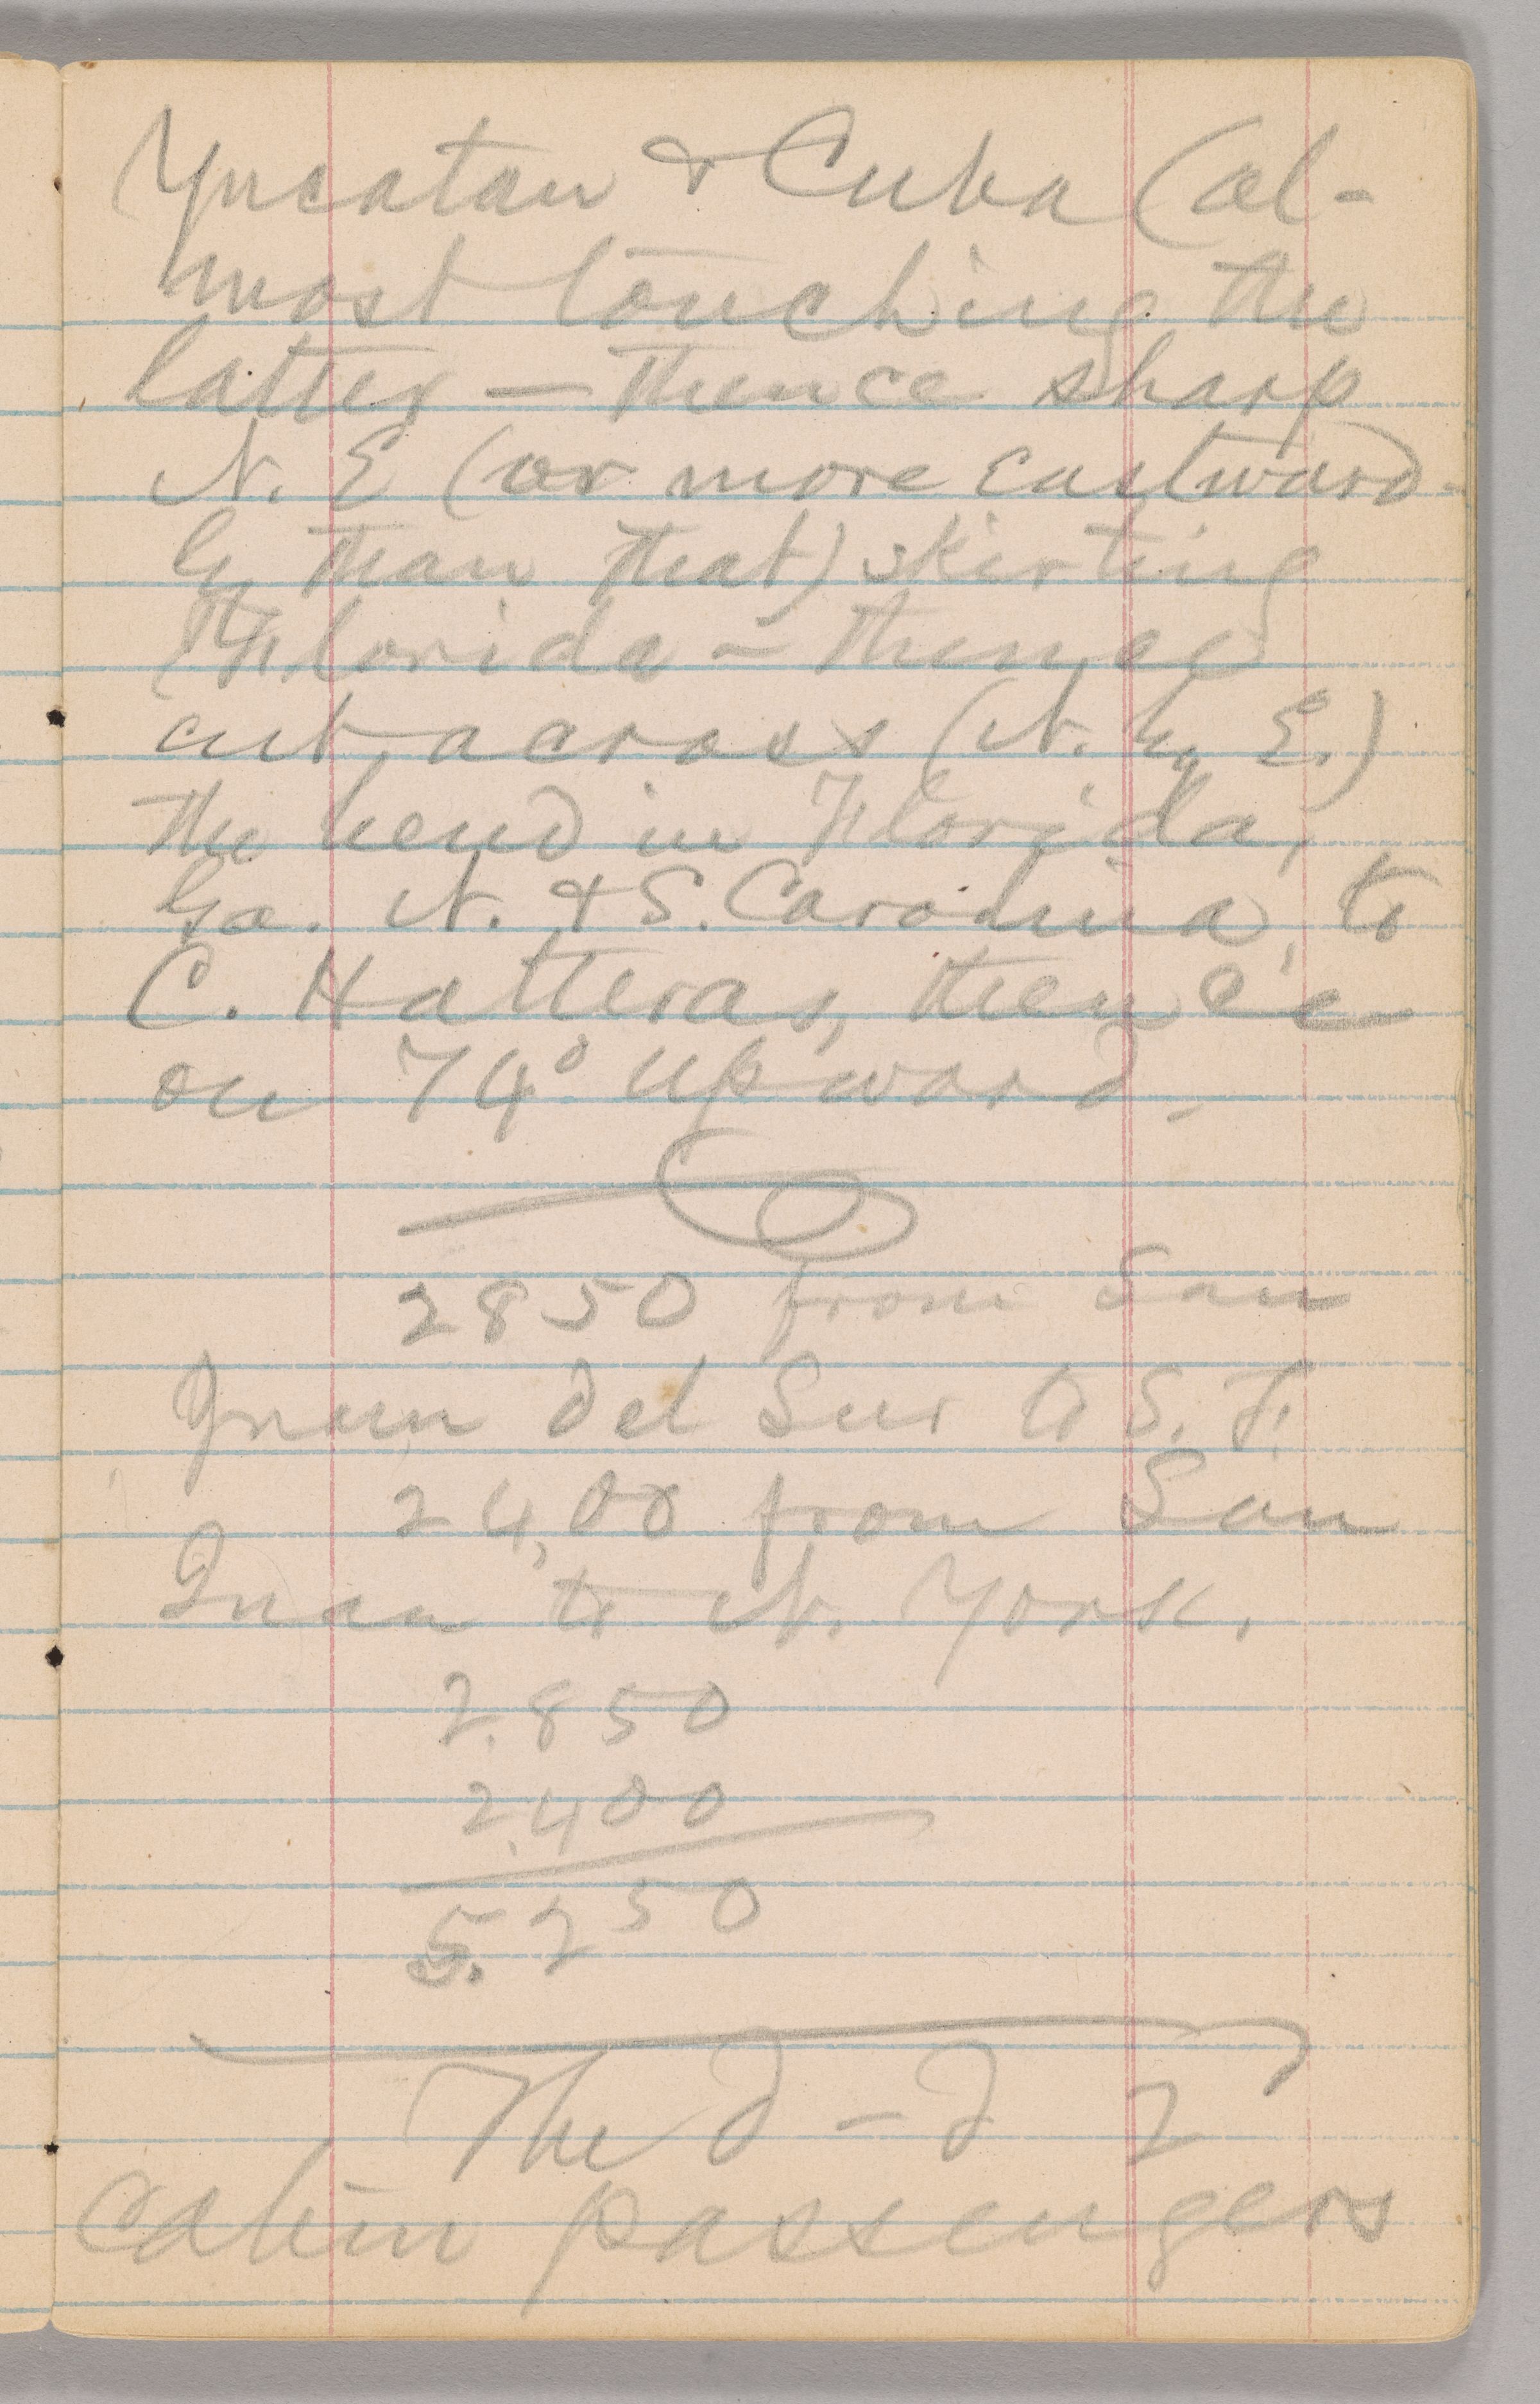 Yucatan & Cuba (al-
most touching the
latter — thence sharp
N. E (or more eastward-
ly than that) skirting
Florida — thence
cut across (N. by E.)
the bend in Florida,
Ga. N. & S. Carolina, to
C. Hatteras, thence
on 74° upward.
2850 from San
Juan del Sur to S. F.
2400 from San
Juan to N. York.
2850
2400
5.250
The d—d 2
cabin passengers